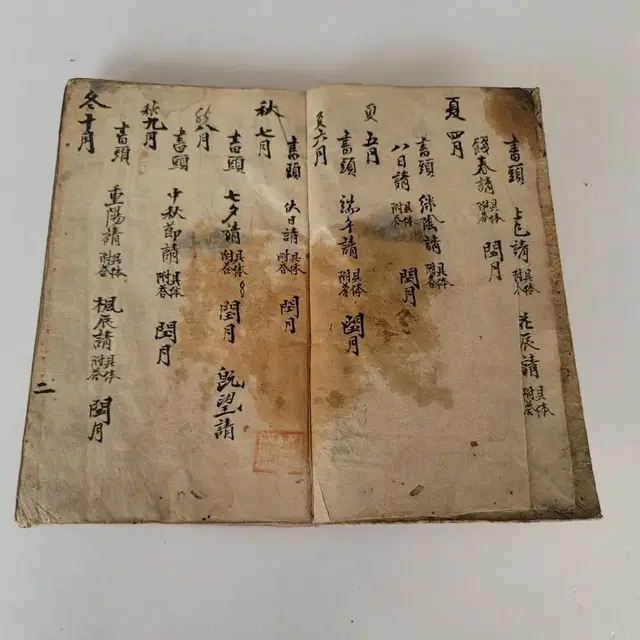 書頭 上巳請 具体附答 花辰請 具体附答
餞春請 具体附答 閏月
夏四月
書頭 綠陰請 具体附答
八日請 具体附答 閏月
夏五月
書頭 端午請 具体附答 閏月
夏六月
書頭 伏日請 具体附答 閏月
秋七月
書頭 七夕請 具体附答 閏月 旣望請
秋八月
書頭 中秋節請 具体附答 閏月
秋九月
書頭 重陽請 具体附答 楓辰請 具体附答 閏月
冬十月
二